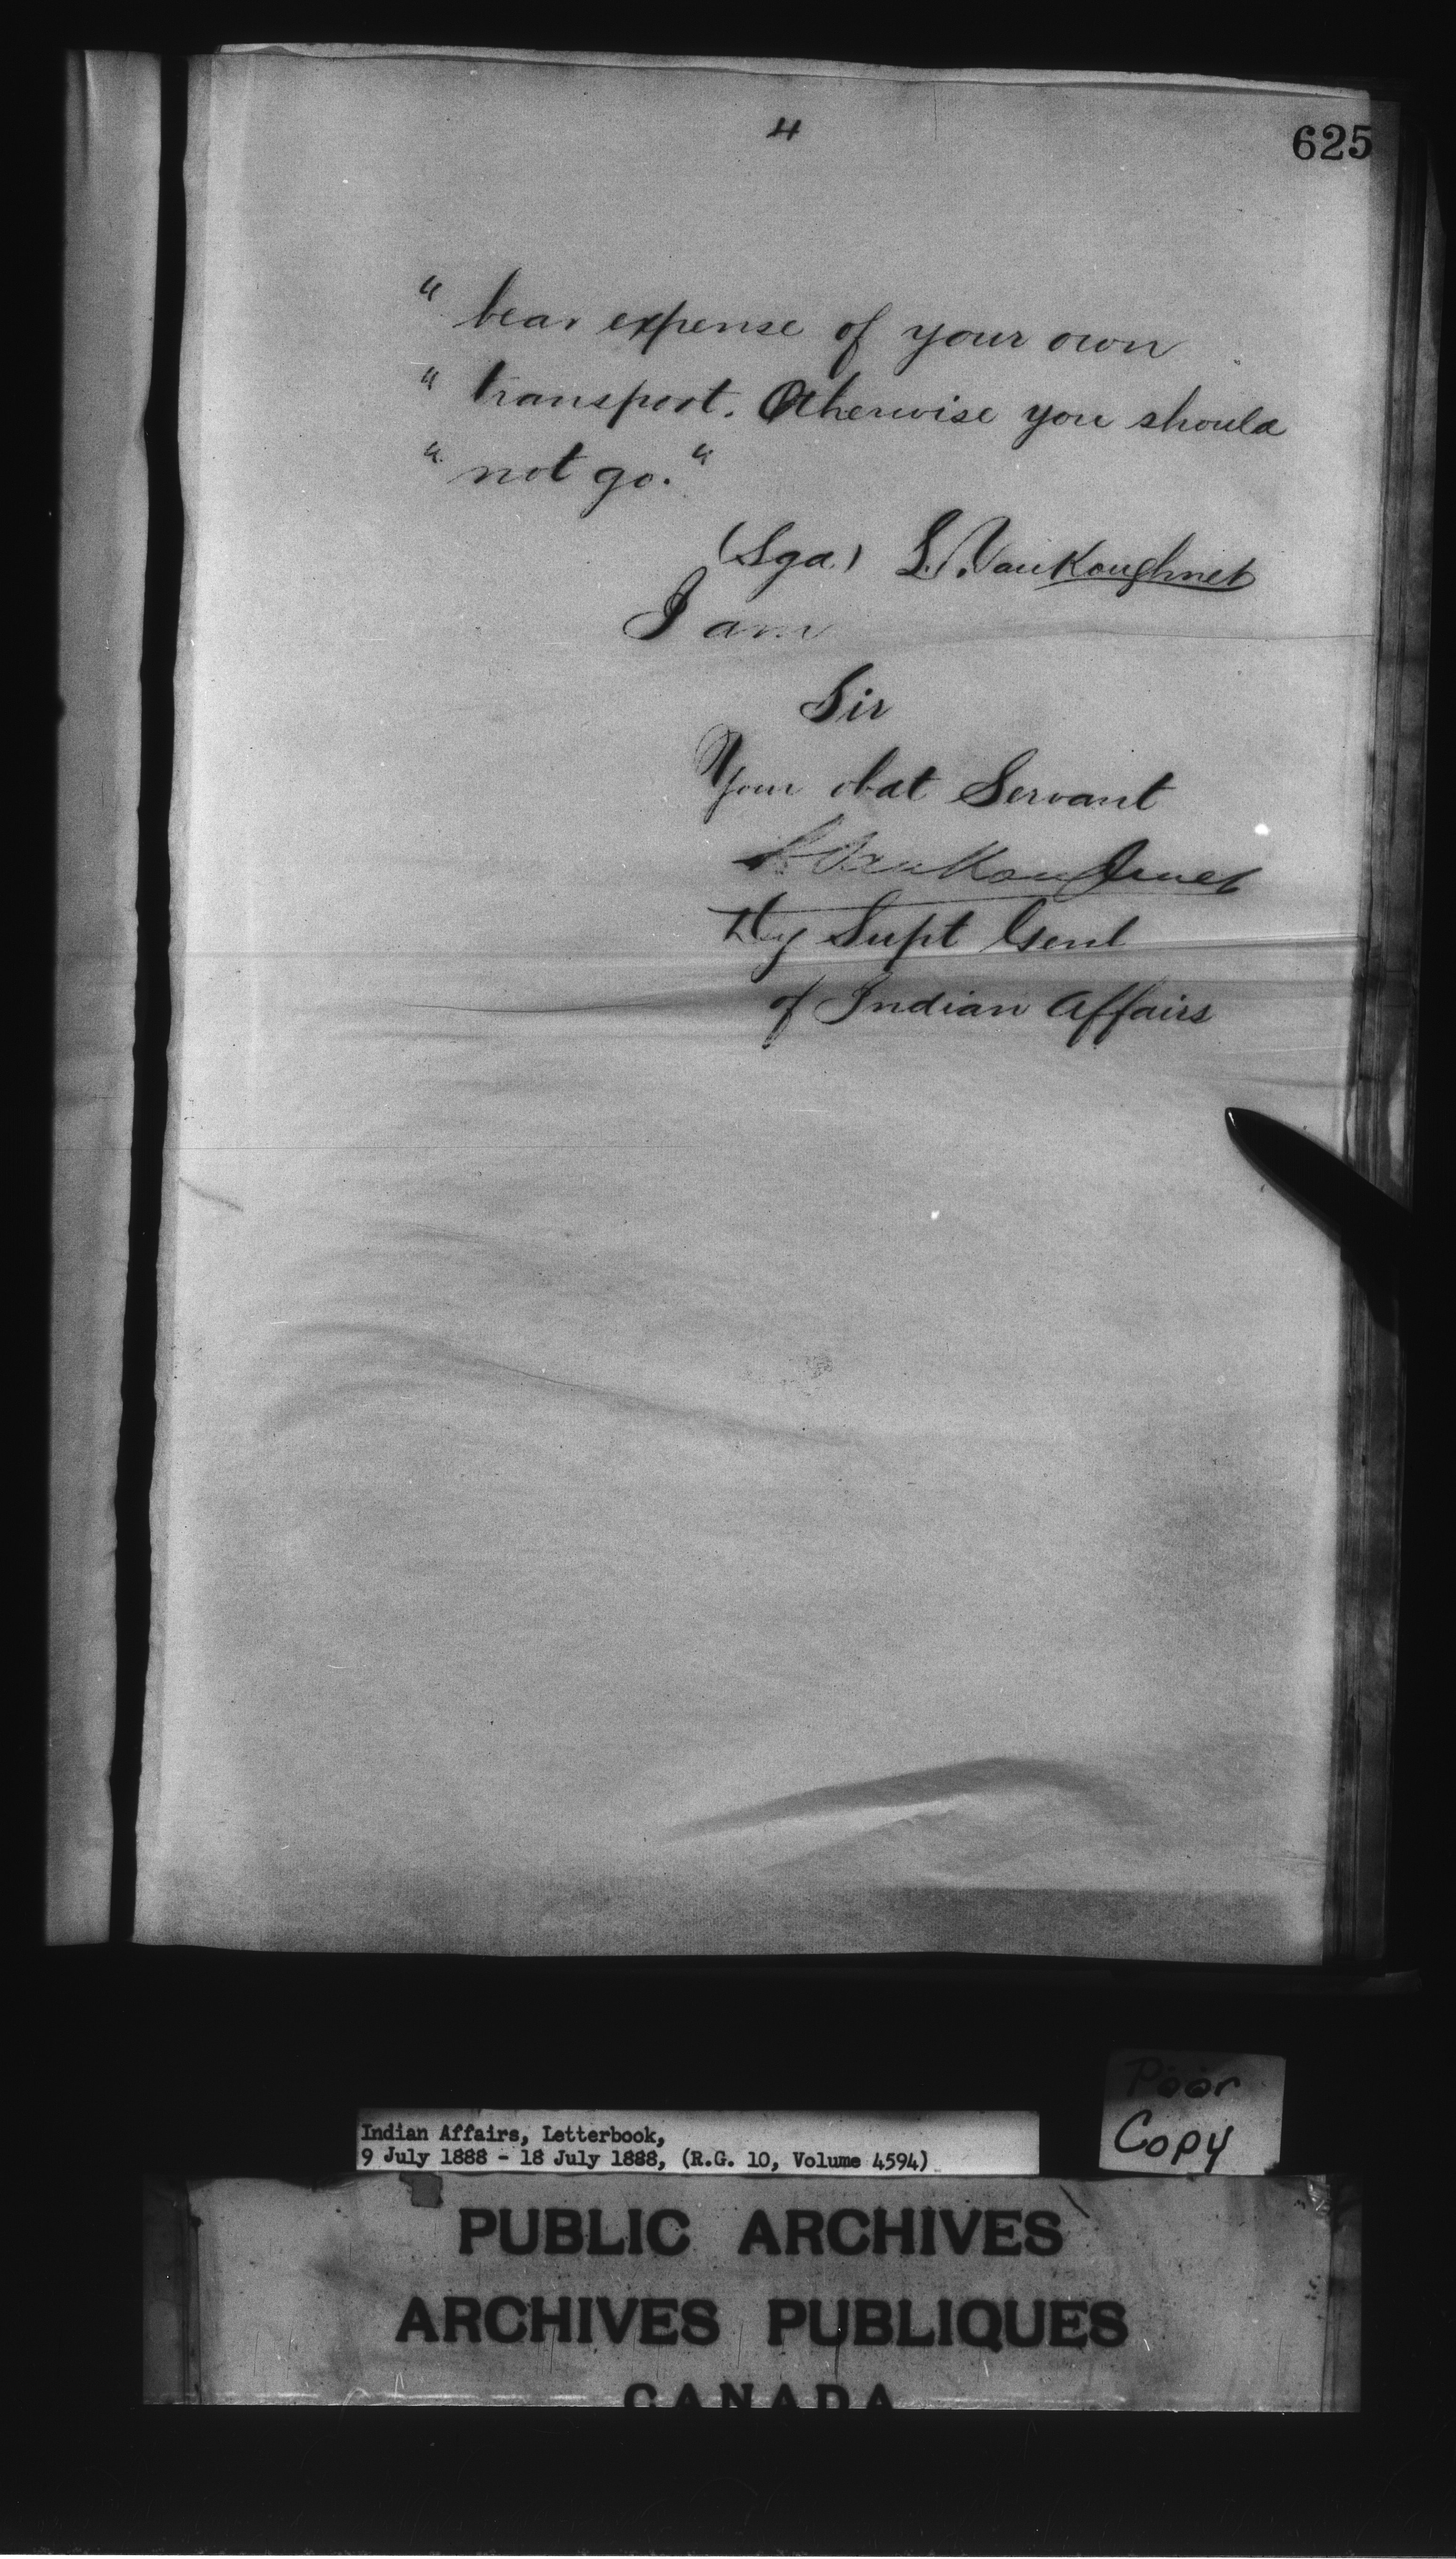 4
625
" bear expense of your own
" transport. Otherwise you should
" not go. "
(Sgd) L. VanKoughnet
I am
Sir
Your obdt Servant
L VanKoughnet
Dy Supt Genl
of Indian Affairs
Poor
Copy
Indian Affairs, Letterbook,
9 July 1888 - 18 July 1888, (R.G. 10, Volume 4594)
PUBLIC ARCHIVES
ARCHIVES PUBLIQUES
CANADA